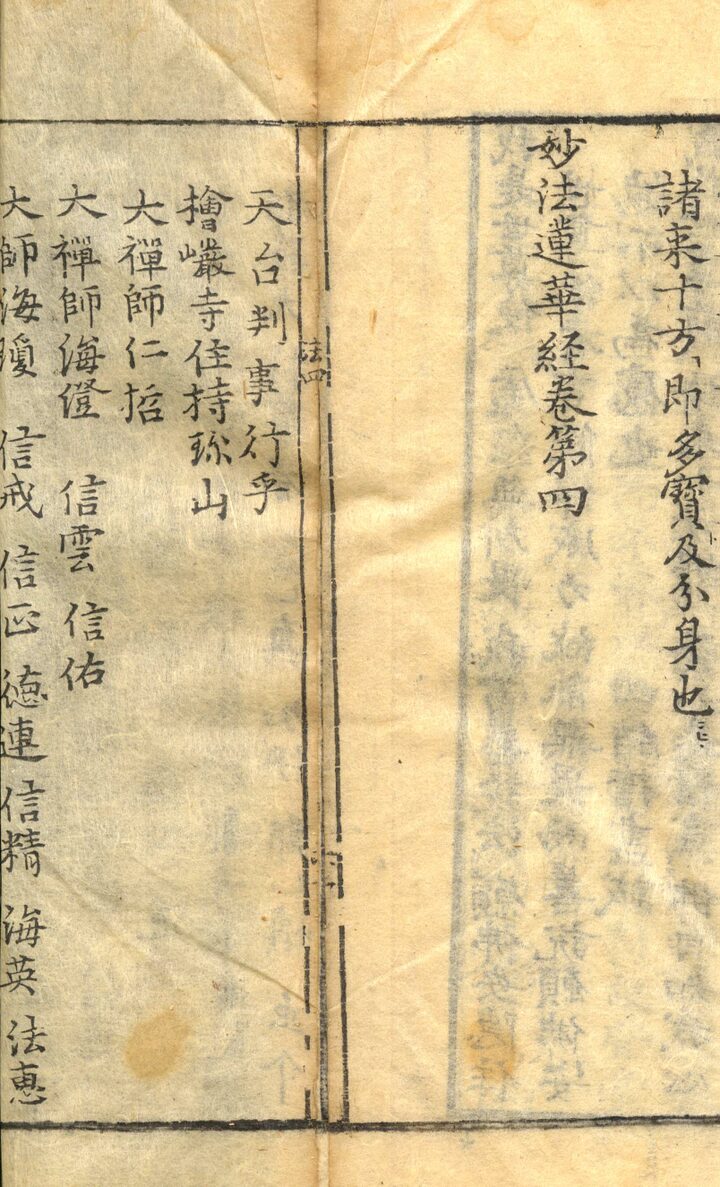 諸来十方、即多寶及分身也
妙法蓮華経卷第四
法四
天台判事行乎
檜巖寺住持琢山
大禪師仁哲
大禪師海澄 信雲 信佑
大師海瓊 信戒 信正 徳連 信精 海英 法恵